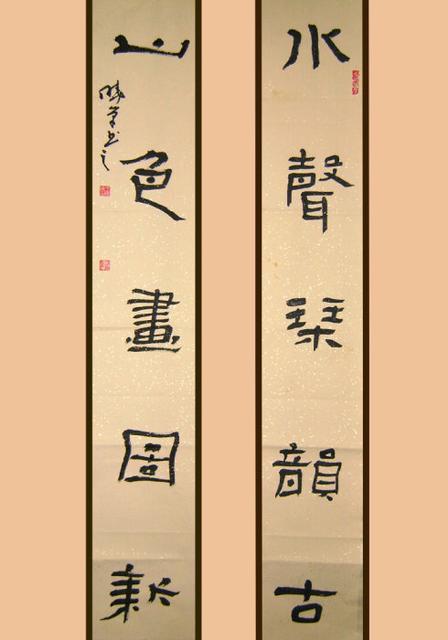 水聲琹韻古
山色畫圖新